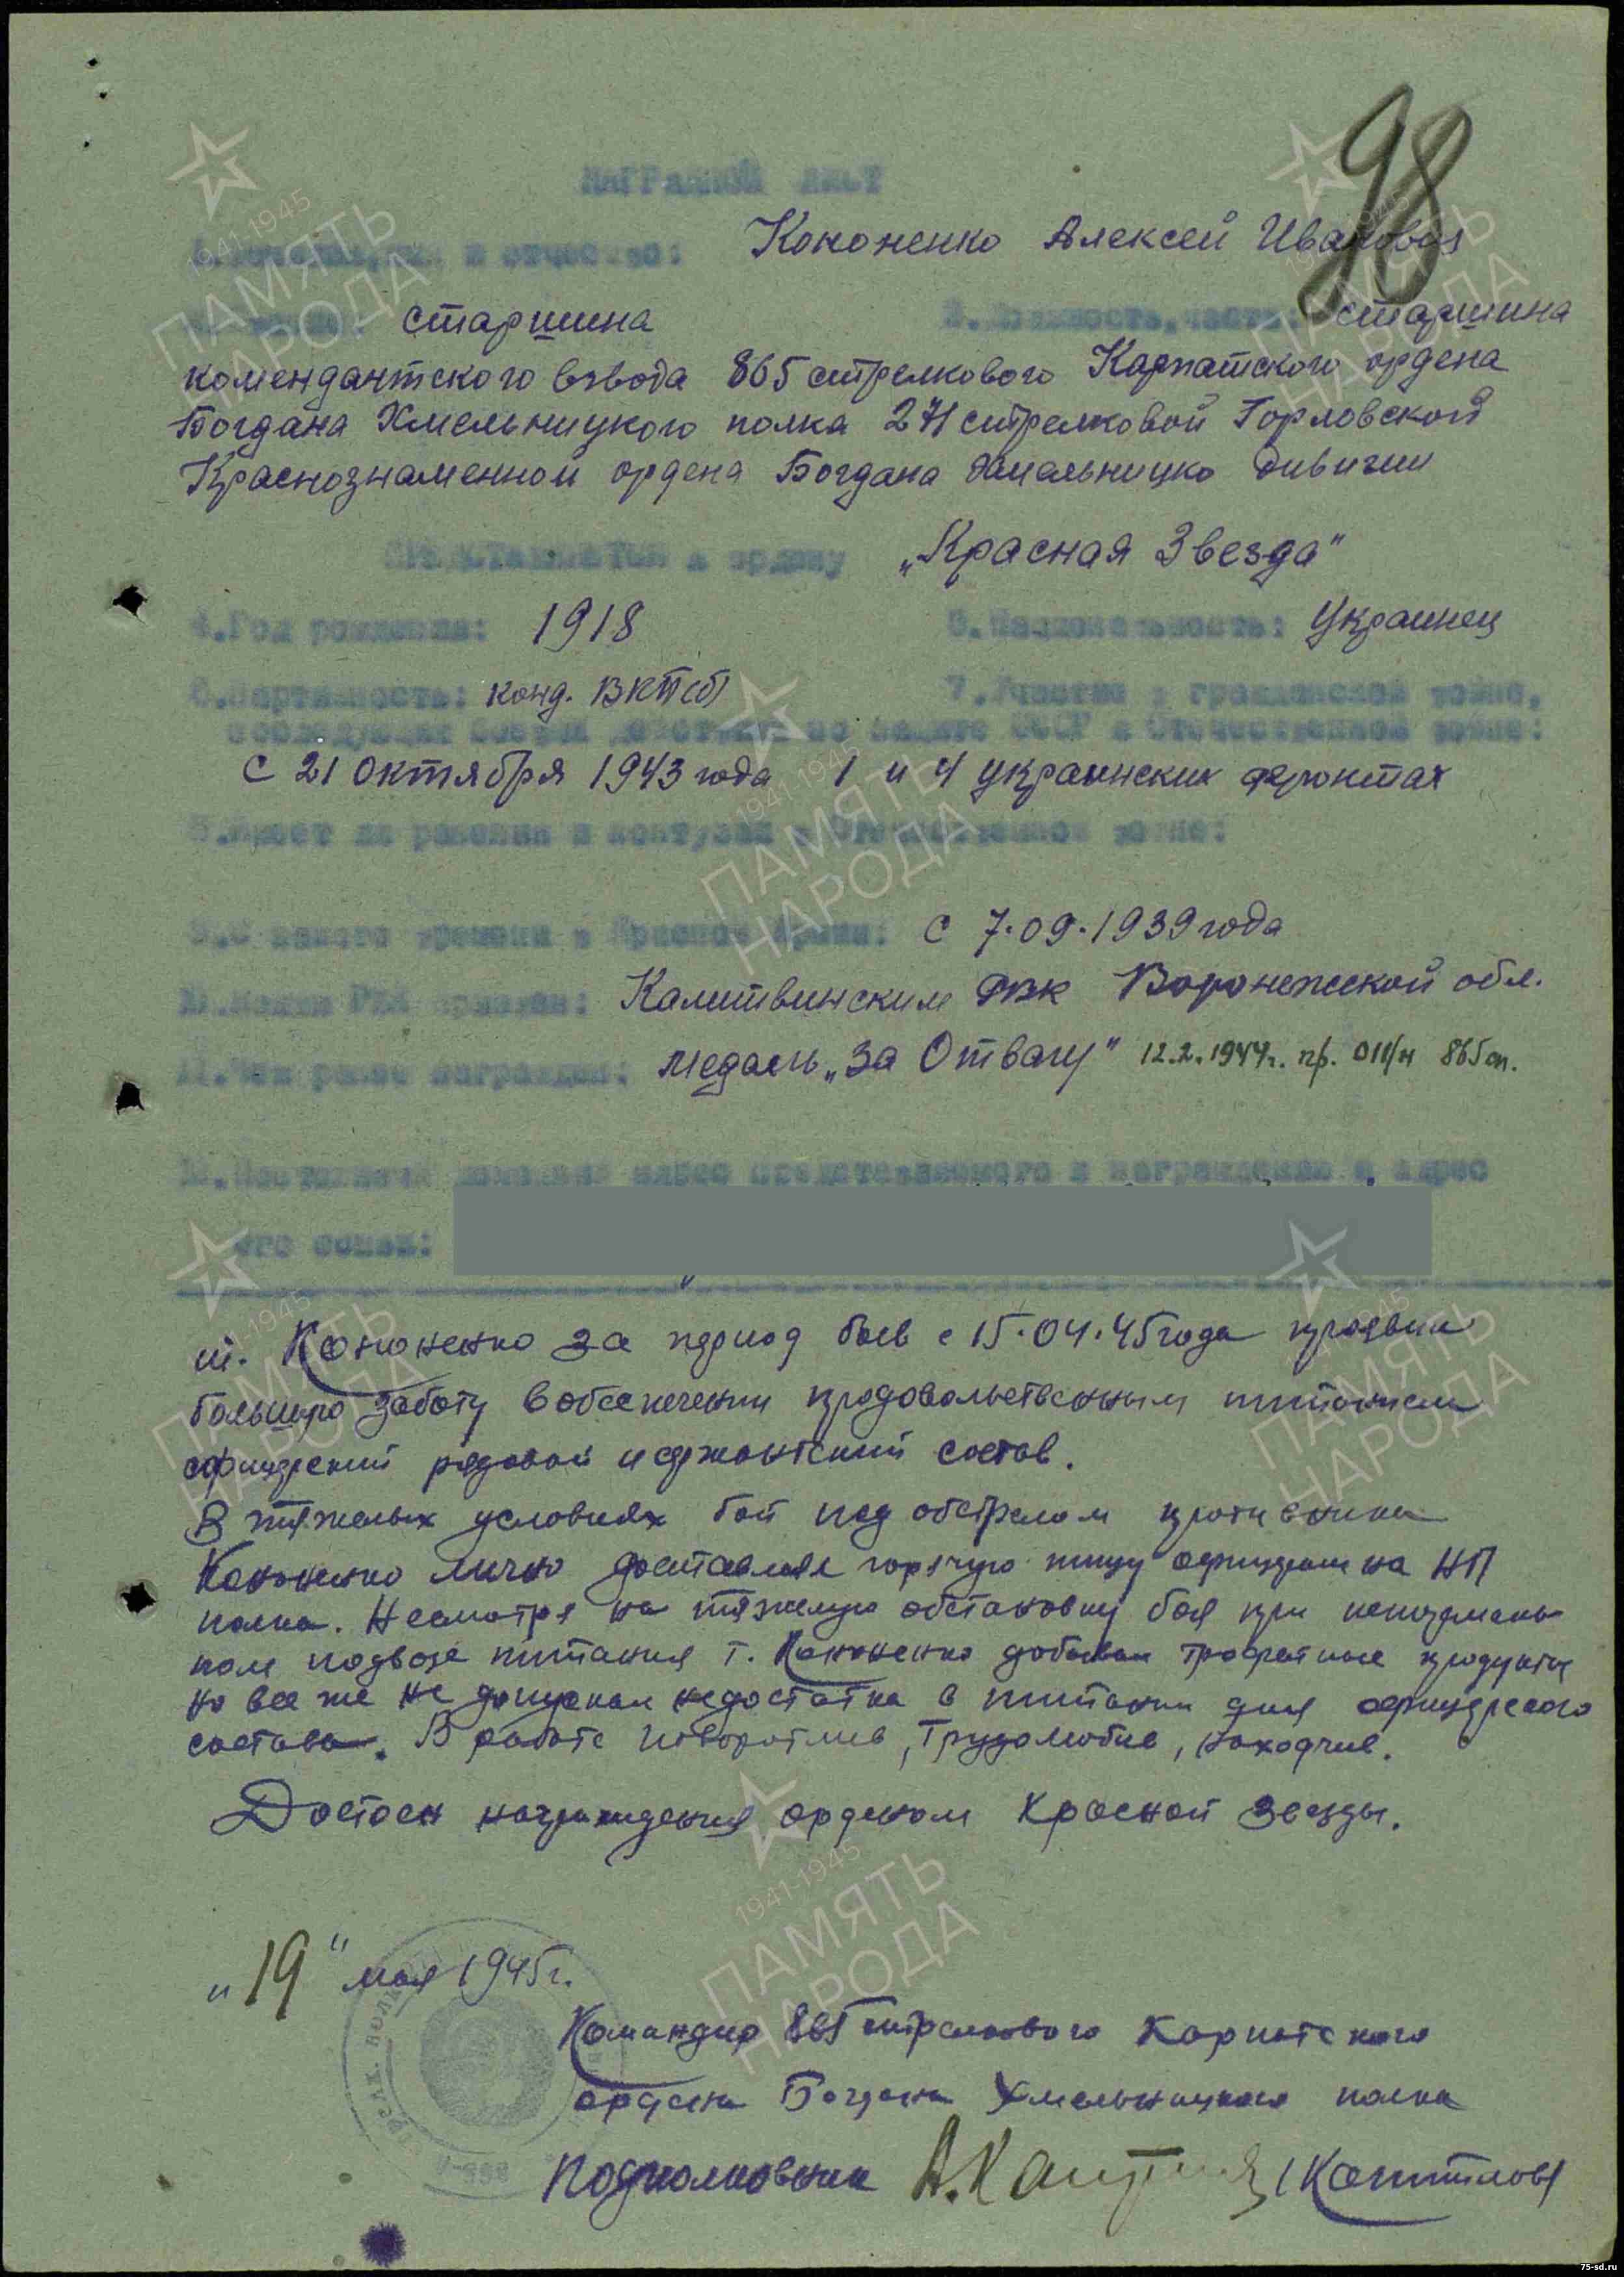 98
НАГРАДНОЙ ЛИСТ
1.Фамилия,имя и отчество: Кононенко Алексей Иванович
2.Звание: старшина 3.Должность,часть: старшина
комендантского взвода 865 стрелкового Карпатского ордена
Богдана Хмельницкого полка 271 стрелковой Горловской
Краснознаменной ордена Богдана Хмельницко дивизии
ПРЕДСТАВЛЯЕТСЯ к ордену „Красная Звезда"
4.Год рождения: 1918 5.Национальность: Украинец
6.Партийность: канд. ВКП(б) 7.Участие в гражданской войне,
последующих боевых действиях по защите СССР и Отечественной войне:
С 21 октября 1943 года 1 и 4 украинских фронтах
8.Имеет ли ранения и контузии в Отечественной войне:
9.С какого времени в Красной Армии: С 7.09.1939 года
10.Каким РВК призван: Калитвинским РВК Воронежской обл.
11.Чем ранее награжден: Медаль „За Отвагу" 12.2.1944г. пр. 011/н 865 сп.
12.Постоянный домашний адрес представляемого к награждению и адрес
его семьи:
т. Кононенко за период боев с 15.04.45 года проявил
большую заботу в обеспечении продовольственным питанием
офицерский рядовой и сержантский состав.
В тяжелых условиях боя под обстрелом противника
Кононенко лично доставлял горячую пищу офицерам на НП
полка. Несмотря на тяжелую обстановку боя при
ном подвозе питания т. Кононенко добывал трофейные продукты
но все же не допускал недостатка в питании для офицерского
состава. В работе поворотлив, трудолюбив, находчив.
Достоен награждения орденом Красной Звезды.
„19" мая 1945г.
Командир 865 стрелкового Карпатского
ордена Богдана Хмельницкого полка
Подполковник
СТРЕЛК. ПОЛК
ПАМЯТЬ
НАРОДА
1941-1945
75-sd.ru